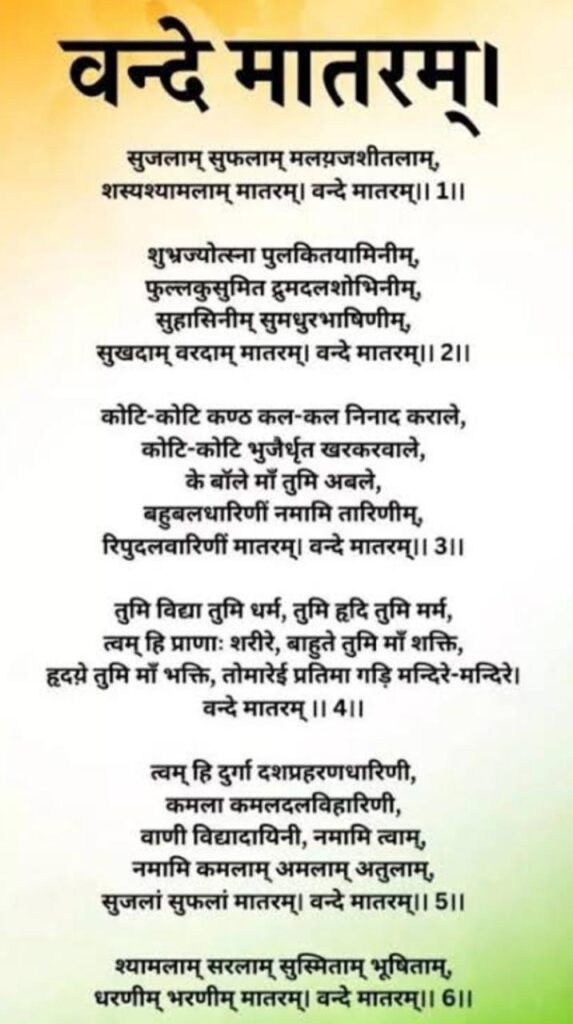 वन्दे मातरम्।
सुजलाम् सुफलाम् मलय़जशीतलाम्,
शस्यश्यामलाम् मातरम्। वन्दे मातरम्।। 1।।
शुभ्रज्योत्स्ना पुलकितयामिनीम्,
फुल्लकुसुमित द्रुमदलशोभिनीम्,
सुहासिनीम् सुमधुरभाषिणीम्,
सुखदाम् वरदाम् मातरम्। वन्दे मातरम्।। 2।।
कोटि-कोटि कण्ठ कल-कल निनाद कराले,
कोटि-कोटि भुजैर्धृत खरकरवाले,
के बॉले माँ तुमि अबले,
बहुबलधारिणीं नमामि तारिणीम्,
रिपुदलवारिणीं मातरम्। वन्दे मातरम्।। 3।।
तुमि विद्या तुमि धर्म, तुमि हृदि तुमि मर्म,
त्वम् हि प्राणाः शरीरे, बाहुते तुमि माँ शक्ति,
हृदय़े तुमि माँ भक्ति, तोमारेई प्रतिमा गड़ि मन्दिरे-मन्दिरे।
वन्दे मातरम् ।। 4।।
त्वम् हि दुर्गा दशप्रहरणधारिणी,
कमला कमलदलविहारिणी,
वाणी विद्यादायिनी, नमामि त्वाम्,
नमामि कमलाम् अमलाम् अतुलाम्,
सुजलां सुफलां मातरम्। वन्दे मातरम्।। 5।।
श्यामलाम् सरलाम् सुस्मिताम् भूषिताम्,
धरणीम् भरणीम् मातरम्। वन्दे मातरम्।। 6।।